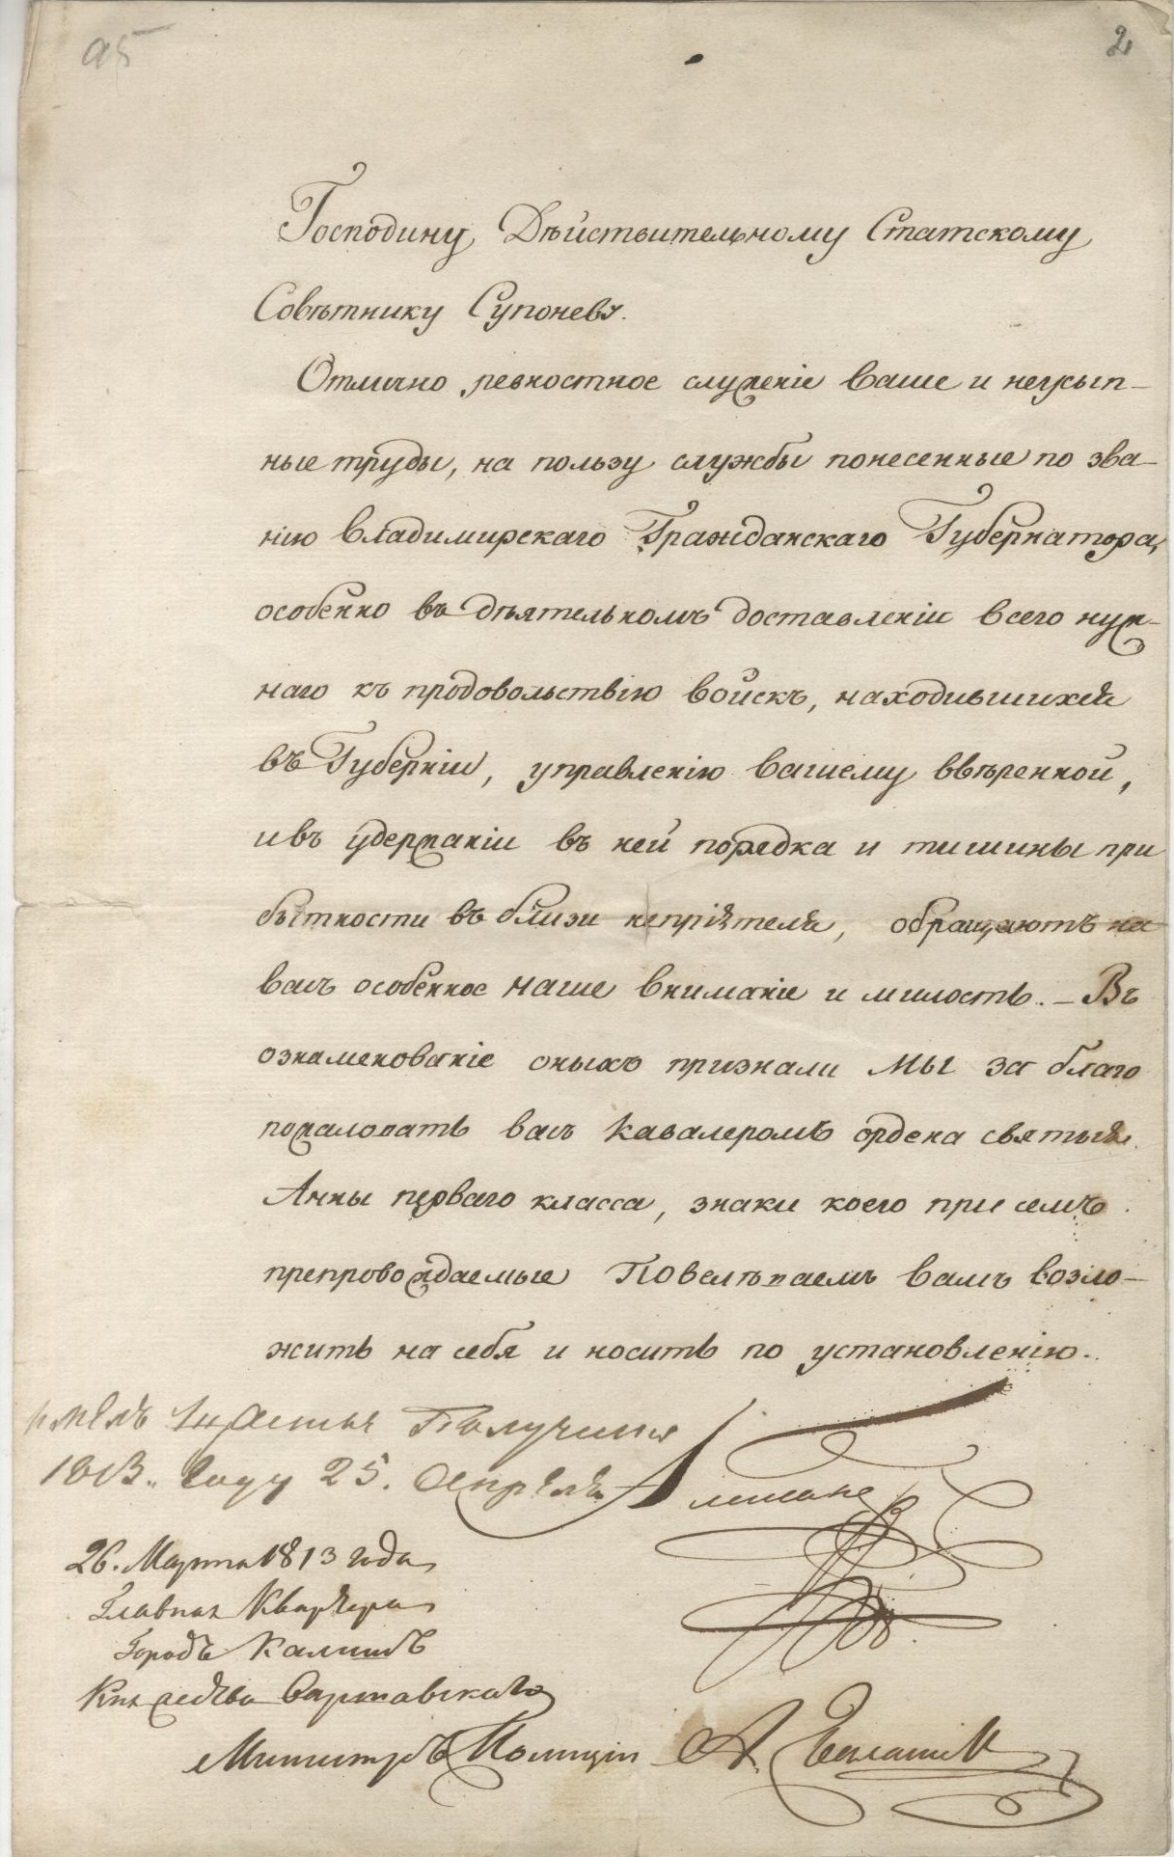 95
2
Господину Дѣйствительному Статскому
Совѣтнику Супоневу.
Отлично ревностное служеніе ваше и неусып-
ные труды, на пользу службы понесенные по зва-
нію Владимирскаго Гражданскаго Губернатора,
особенно въ дѣятельномъ доставленіи всего нуж-
наго къ продовольствію войскъ, находившихся
въ Губерніи, управленію вашему ввѣренной,
и въ удержаніи въ ней порядка и тишины при
бытности въ близи непріятеля, обращаютъ на
васъ особенное наше вниманіе и милость. – Въ
ознаменованіе оныхъ признали Мы за благо
пожаловать васъ кавалеромъ ордена святыя
Анны перваго класса, знаки коего при семъ
препровождаемые Повелѣваемъ вамъ возло-
жить на себя и носить по установленію.
имѣлъ щастье Получить
1813. году 25. Апрѣля
Александръ
26. Марта 1813 года
Главная Квартера
Городъ Калишъ
Княжества Варшавскаго
Министръ Полиціи А. Балашов